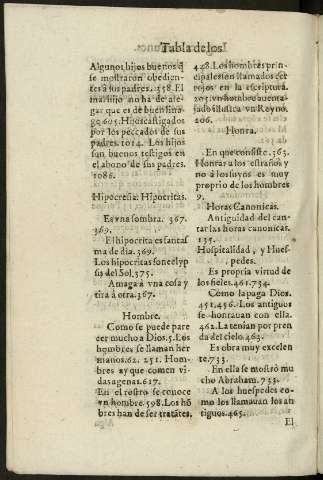 Tabla de los
Algunos hijos buenos q̃
se mostraron obedien-
tes a sus padres. 358. El
mal hijo no ha de ale-
gar que es de buen lina-
ge 605. Hijos castigados
por los peccados de sus
padres. 1014. Los hijos
sun buenos testigos en
el abono de sus padres.
1086.
Hipocresia: Hipocritas.
Es vna sombra. 367.
369.
El hipocrita es fantas
ma de dia. 369.
Los hipocritas son eclyp
sis del Sol. 375.
Amaga à vna cosa y
tira à otra. 367.
Hombre.
Como se puede pare
cer mucho a Dios. 5. Los
hombres se llaman her
manos. 62. 251. Hom-
bres ay que comen vi-
das agenas. 617.
En el rostro se conoce
vn hombre. 598. Los hõ
bres han de ser tratates.
448. Los hombres prin-
cipales son llamados cer
rojos en la escriptura.
205. vn hombre auenta-
jado illustra vn Reyno.
206.
Honra.
En que consiste. 363.
Honrar a los estraños y
no à los suyos es muy
proprio de los hombres
9
Horas Canonicas.
Antiguidad del can-
tar las horas canonicas.
137.
Hospitalidad, y Hues-
pedes.
Es propria virtud de
los fieles. 461. 734.
Como la paga Dios.
451. 456. Los antiguos
se honrauan con ella.
462. La tenian por pren
da del cielo. 463.
Es obra muy excelen
te. 733.
En ella se mostrò mu
cho Abraham. 733.
A los huespedes co-
mo les llamauan los an
tiguos. 465.
El